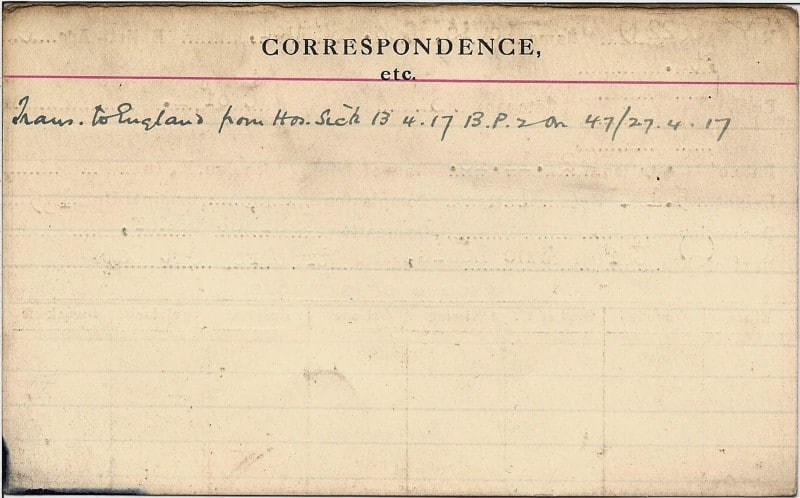 CORRESPONDENCE,
etc.
Trans. to England from Hos. Sick 13 4.17 B.P.2 on 47/27.4.17